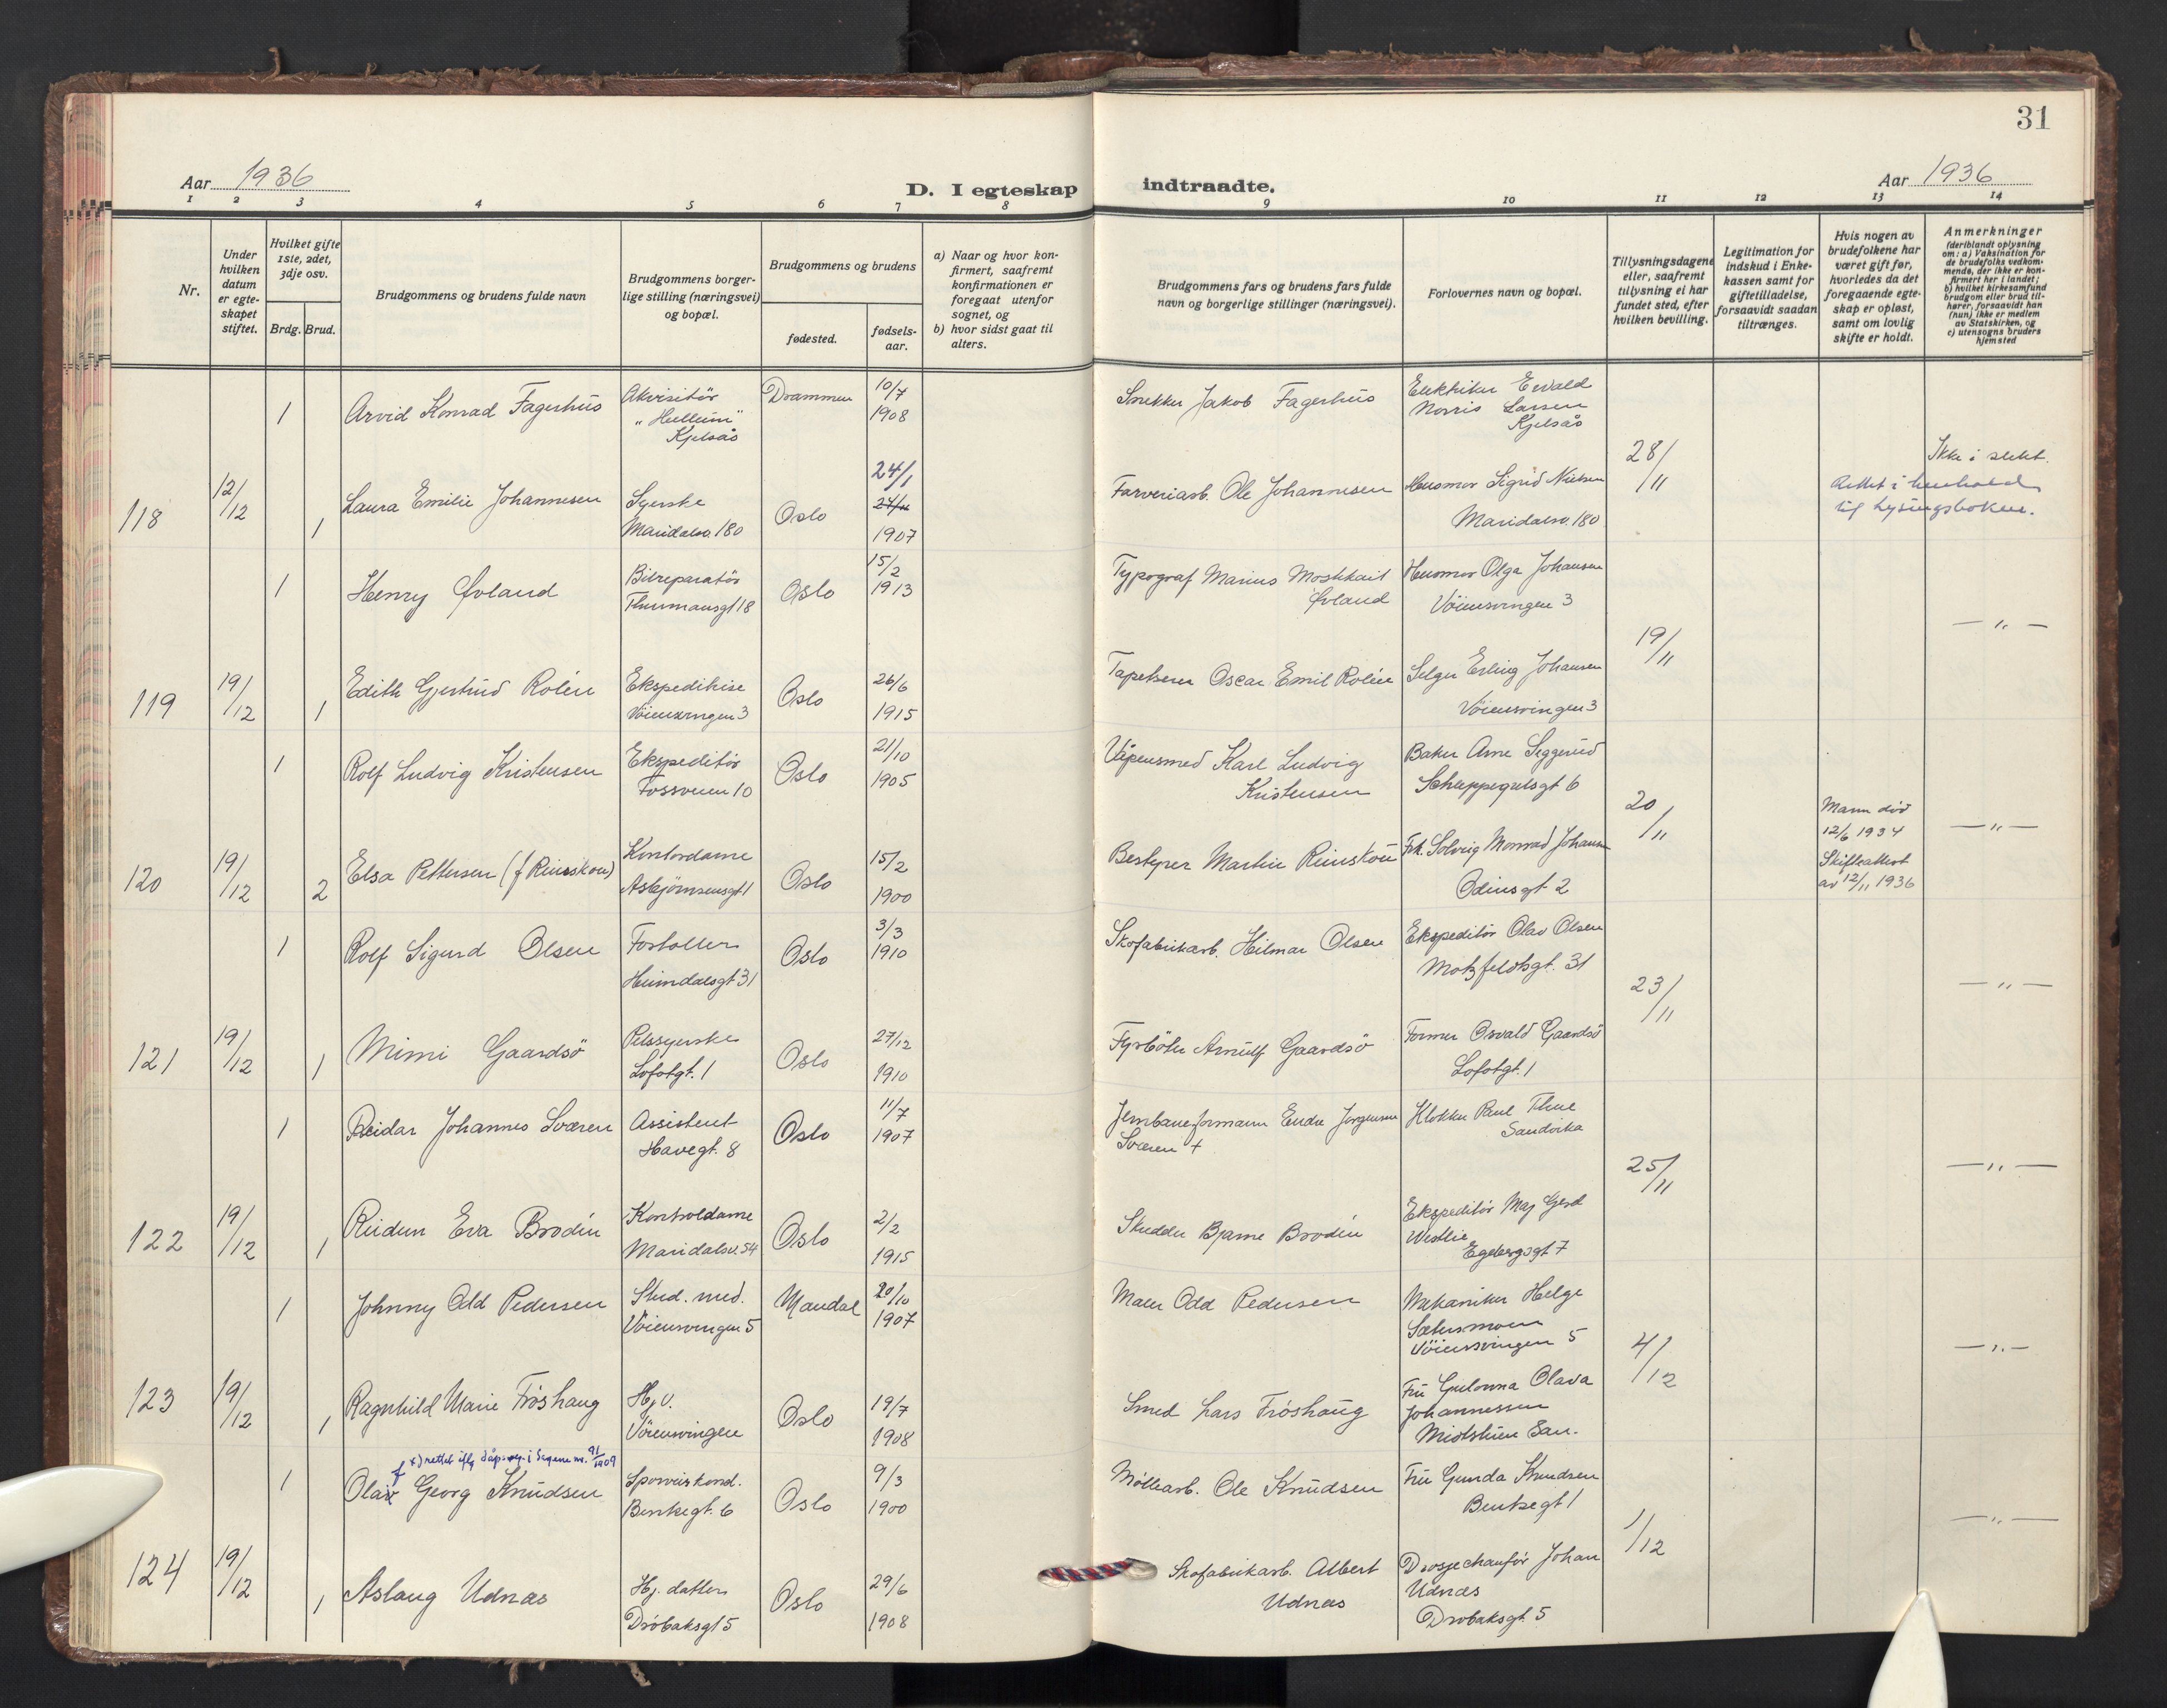 31
Aar 1936
D. I egteskap indtraadte.
Aar 1936
1 2 3 4 5 6 7 8 9 10 11 12 13 14
Nr.
Under hvilken datum er egteskapet stiftet.
Hvilket gifte 1ste, 2det, 3dje osv.
Brdg. Brud.
Brudgommens og brudens fulde navn
Brudgommens borgerlige stilling (næringsvei) og bopæl.
Brudgommens og brudens
fødested.
fødselsaar.
a) Naar og hvor konfirmert, saafremt konfirmationen er foregaat utenfor sognet, og
b) hvor sidst gaat til alters.
Brudgommens fars og brudens fars fulde navn og borgerlige stillinger (næringsvei).
Forlovernes navn og bopæl.
Tillysningsdagene eller, saafremt tillysning ei har fundet sted, efter hvilken bevilling.
Legitimation for indskud i Enkekassen samt for giftetilladelse, forsaavidt saadan tiltrænges.
Hvis nogen av brudefolkene har været gift før, hvorledes da det foregaaende egteskap er opløst, samt om lovlig skifte er holdt.
Anmerkninger
(deriblandt oplysning om: a) Vaksination for de brudefolks vedkommende, der ikke er konfirmert her i landet; b) hvilket kirkesamfund brudgom eller brud tilhører, forsaavidt han (hun) ikke er medlem av Statskirken, og c) utensogns bruders hjemsted
1 Arvid Konrad Fagerhus Akvisitör "Hellum" Kjelsås Drammen 10/7 1908 Snekker Jakob Fagerhus Elektriker Ewald Norris Larsen Kjelsås
118 12/12 1 Laura Emilie Johannesen Syerske Maridalsv. 180 Oslo 24/1 24/11 1907 Farveriarb. Ole Johannesen Husmor Sigrid Nielsen Maridalsv. 180 28/11 Ikke i slekt.
Rettet i henhold
til lysingsboken.
1 Henry Øvland Bilreparatör Thurmannsgt 18 Oslo 15/2 1913 Typograf Marius Øvland Husmor Olga Johansen Vöiensvingen 3
119 19/12 1 Edith Gjertrud Rolén Ekspeditrise Vöiensvingen 3 Oslo 26/6 1915 Tapetserer Oscar Emil Rolén Selger Erling Johansen Vöiensvingen 3 19/11 — " —
1 Rolf Ludvig Kristensen Ekspeditör Fossveien 10 Oslo 21/10 1905 Våpensmed Karl Ludvig Kristensen Baker Arne Seggerud Schleppegrelsgt 6
120 19/12 2 Elsa Pettersen (f Reinskou) Kontordame Asbjörnsensgt 1 Oslo 15/2 1900 Bestyrer Martin Reinskou Frk. Solveig Monrad Johansen Odinsgt 2 20/11 Mann död 12/6 1934 Skifteattest av 12/11 1936 — " —
1 Rolf Sigurd Olsen Fortoller Heimdalsgt 31 Oslo 3/3 1910 Skofabrikarb. Hilmar Olsen Ekspeditör Olav Olsen Motzfeldtsgt. 31
121 19/12 1 Mimi Gaardsö Pelssyerske Lofotgt. 1 Oslo 27/12 1910 Fyrböter Arnulf Gaardsö Former Osvald Gaardsö Lofotgt. 1 23/11 — " —
1 Reidar Johannes Sværen Assistent Havegt. 8 Oslo 11/7 1907 Jernbaneformann Endre Jorgensen Sværen + Klokker Paul Thue Sandvika
122 19/12 1 Reidun Eva Brodin Kontordame Maridalsv. 54 Oslo 2/2 1915 Skredder Bjarne Brodin Ekspeditör Maj Gerd Westlie Egebergsgt 7 25/11 — " —
1 Johnny Odd Pedersen Stud. med. Vöiensvingen 5 Mandal 20/10 1907 Maler Odd Pedersen Mekaniker Helge Sætersmoen Vöiensvingen 5
123 19/12 1 Ragnhild Marie Fröshaug Hj. V. Vöiensvingen Oslo 19/7 1908 Smed Lars Fröshaug Fru Olava Johannessen San. 4/12 — " —
x) rettet iflg dåpsreg. i Sagene nr. 91/1909
1 Olaf Georg Knudsen Sporveiskond. Bentsegt. 6 Oslo 9/3 1900 Möllearb. Ole Knudsen Fru Gunda Knudsen Bentsegt 1
124 19/12 1 Aslaug Udnæs Hj. datter Dröbaksgt 5 Oslo 29/6 1908 Skofabrikarb. Albert Udnæs Drosjechauför Johan Udnæs Dröbaksgt. 5 1/12 — " —